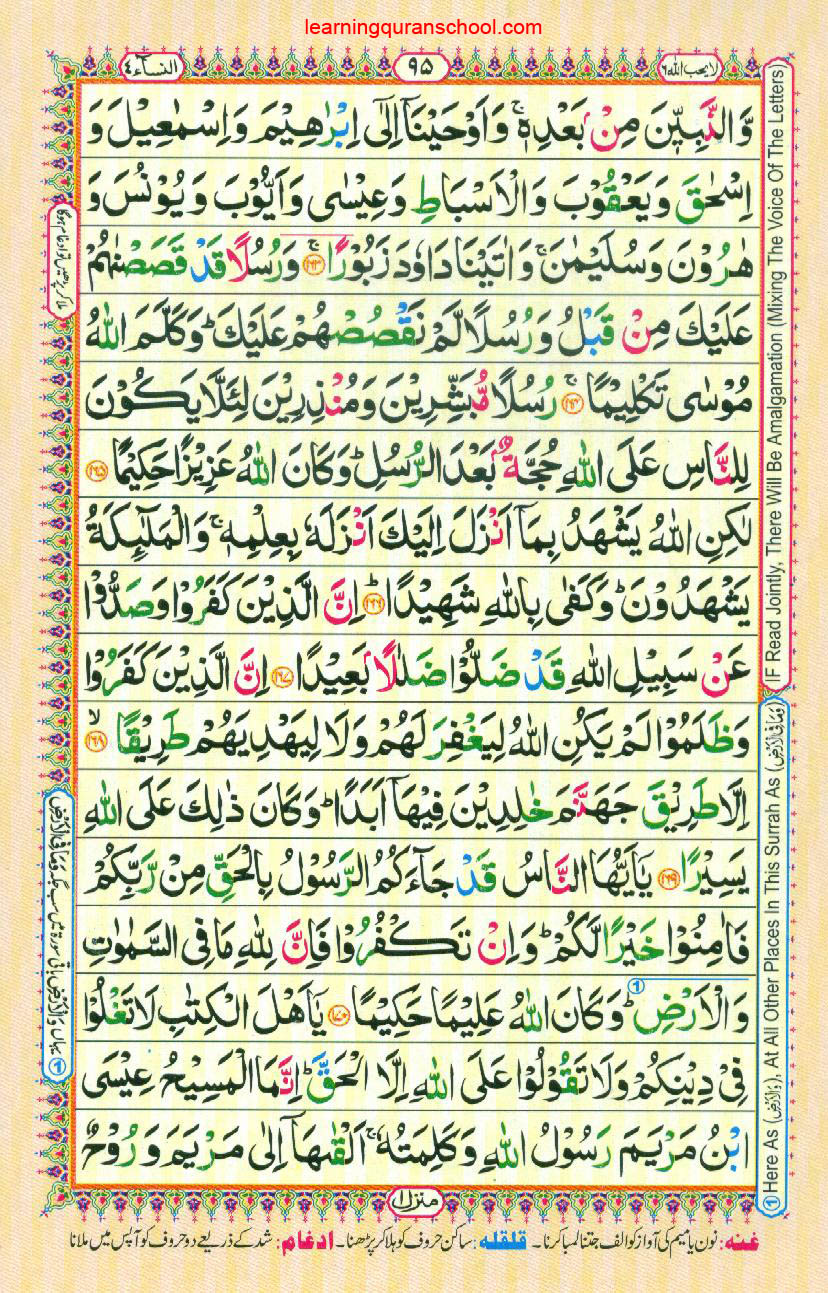 learningquranschool.com
لا یحب اللہ ٦
٩٥
النسآء ٤
وَّالنَّبِيّٖنَ مِنْۢ بَعْدِهٖ ۚ وَاَوْحَيْنَاۤ اِلٰۤى اِبْرٰهِيْمَ وَاِسْمٰعِيْلَ وَ
اِسْحٰقَ وَيَعْقُوْبَ وَالْاَسْبَاطِ وَعِيْسٰى وَاَيُّوْبَ وَيُوْنُسَ وَ
هٰرُوْنَ وَسُلَيْمٰنَ ۚ وَاٰتَيْنَا دَاوٗدَ زَبُوْرًا ۚ ﴿١٦٣﴾ وَرُسُلًا قَدْ قَصَصْنٰهُمْ
عَلَيْكَ مِنْ قَبْلُ وَرُسُلًا لَّمْ نَقْصُصْهُمْ عَلَيْكَ ؕ وَكَلَّمَ اللّٰهُ
مُوْسٰى تَكْلِيْمًا ۚ ﴿١٦٤﴾ رُسُلًا مُّبَشِّرِيْنَ وَمُنْذِرِيْنَ لِئَلَّا يَكُوْنَ
لِلنَّاسِ عَلَى اللّٰهِ حُجَّةٌۢ بَعْدَ الرُّسُلِ ؕ وَكَانَ اللّٰهُ عَزِيْزًا حَكِيْمًا ﴿١٦٥﴾
لٰكِنِ اللّٰهُ يَشْهَدُ بِمَاۤ اَنْزَلَ اِلَيْكَ اَنْزَلَهٗ بِعِلْمِهٖ ۚ وَالْمَلٰٓئِكَةُ
يَشْهَدُوْنَ ؕ وَكَفٰى بِاللّٰهِ شَهِيْدًا ؕ ﴿١٦٦﴾ اِنَّ الَّذِيْنَ كَفَرُوْا وَصَدُّوْا
عَنْ سَبِيْلِ اللّٰهِ قَدْ ضَلُّوْا ضَلٰلًۢا بَعِيْدًا ﴿١٦٧﴾ اِنَّ الَّذِيْنَ كَفَرُوْا
وَظَلَمُوْا لَمْ يَكُنِ اللّٰهُ لِيَغْفِرَ لَهُمْ وَلَا لِيَهْدِيَهُمْ طَرِيْقًا ۙ ﴿١٦٨﴾
اِلَّا طَرِيْقَ جَهَنَّمَ خٰلِدِيْنَ فِيْهَاۤ اَبَدًا ؕ وَكَانَ ذٰلِكَ عَلَى اللّٰهِ
يَسِيْرًا ﴿١٦٩﴾ يٰۤاَيُّهَا النَّاسُ قَدْ جَآءَكُمُ الرَّسُوْلُ بِالْحَقِّ مِنْ رَّبِّكُمْ
فَاٰمِنُوْا خَيْرًا لَّكُمْ ؕ وَاِنْ تَكْفُرُوْا فَاِنَّ لِلّٰهِ مَا فِى السَّمٰوٰتِ
وَالْاَرْضِ ؕ ① وَكَانَ اللّٰهُ عَلِيْمًا حَكِيْمًا ﴿١٧٠﴾ يٰۤاَهْلَ الْكِتٰبِ لَا تَغْلُوْا
فِىْ دِيْنِكُمْ وَلَا تَقُوْلُوْا عَلَى اللّٰهِ اِلَّا الْحَقَّ ؕ اِنَّمَا الْمَسِيْحُ عِيْسَى
ابْنُ مَرْيَمَ رَسُوْلُ اللّٰهِ وَكَلِمَتُهٗ ۚ اَلْقٰىهَاۤ اِلٰى مَرْيَمَ وَرُوْحٌ
منزل ١
غنہ: نون یا میم کی آواز کو الف جتنا لمبا کرنا۔ قلقلہ: ساکن حروف کو ہلا کر پڑھنا۔ ادغام: شد کے ذریعے دو حروف کو آپس میں ملانا
IF Read Jointly, There Will Be Amalgamation (Mixing The Voice Of The Letters)
① Here As (وَالْاَرْضِ), At All Other Places In This Surrah As (وَمَا فِى الْاَرْضِ)
ملا کر پڑھیں تو ادغام ہوگا
① یہاں وَالْاَرْضِ باقی سورۃ میں سب جگہ وَمَا فِى الْاَرْضِ